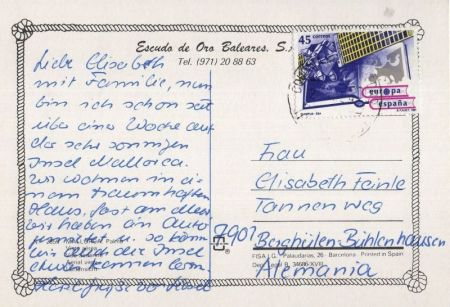 Escudo de Oro Baleares. S.
Tel. (971) 20 88 63
45 correos
europa
españa
Liebe Elisabeth
mit Familie, nun
bin ich schon seit
über eine Woche auf
der sehr sonnigen
Insel Mallorca.
Wir wohnen in ei-
nem traumhaften
Haus, fast am Meer
wir haben ein Auto
so könn
der Insel
kennen lern.
Frau
Elisabeth Feinle
Tannenweg
7901 Berghülen-Bühlenhausen
Alemania
FISA I.G. Palaudarias, 26 - Barcelona Printed in Spain
Dep. Legal B. 34686-XVIII